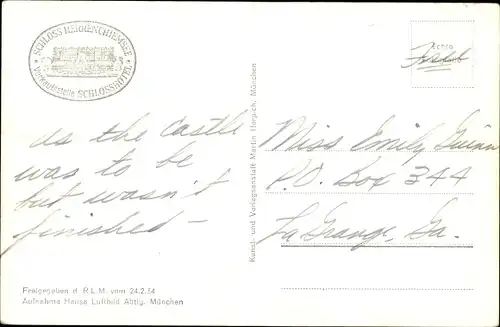 SCHLOSS HERRENCHIEMSEE
Verkaufsstelle SCHLOSSHOTEL
Free
as the castle
was to be
but wasn't
finished -
Kunst- und Verlagsanstalt Martin Herpich, München
Miss Emily Guinn
P.O. Box 344
La Grange, Ga.
Freigegeben d. R.L.M. vom 24.2.34
Aufnahme Hansa Luftbild Abtlg. München